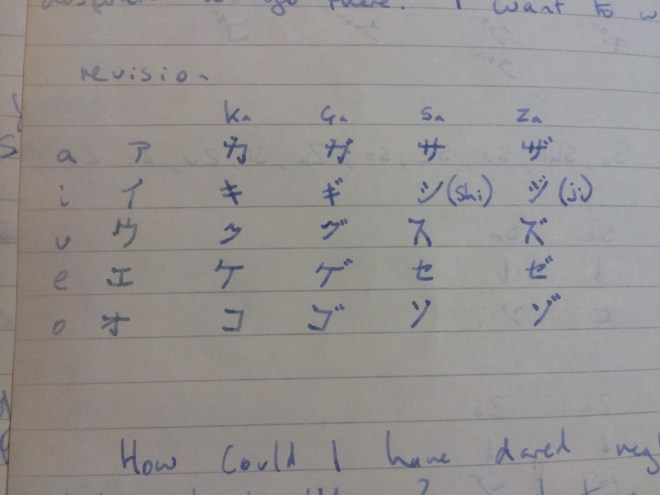 go there. I want to w
revision.
Ka Ga Sa Za
a ア カ ガ サ ザ
i イ キ ギ シ(shi) ジ(ji)
u ウ ク グ ス ズ
e エ ケ ゲ セ ゼ
o オ コ ゴ ソ ゾ
How could I have dared